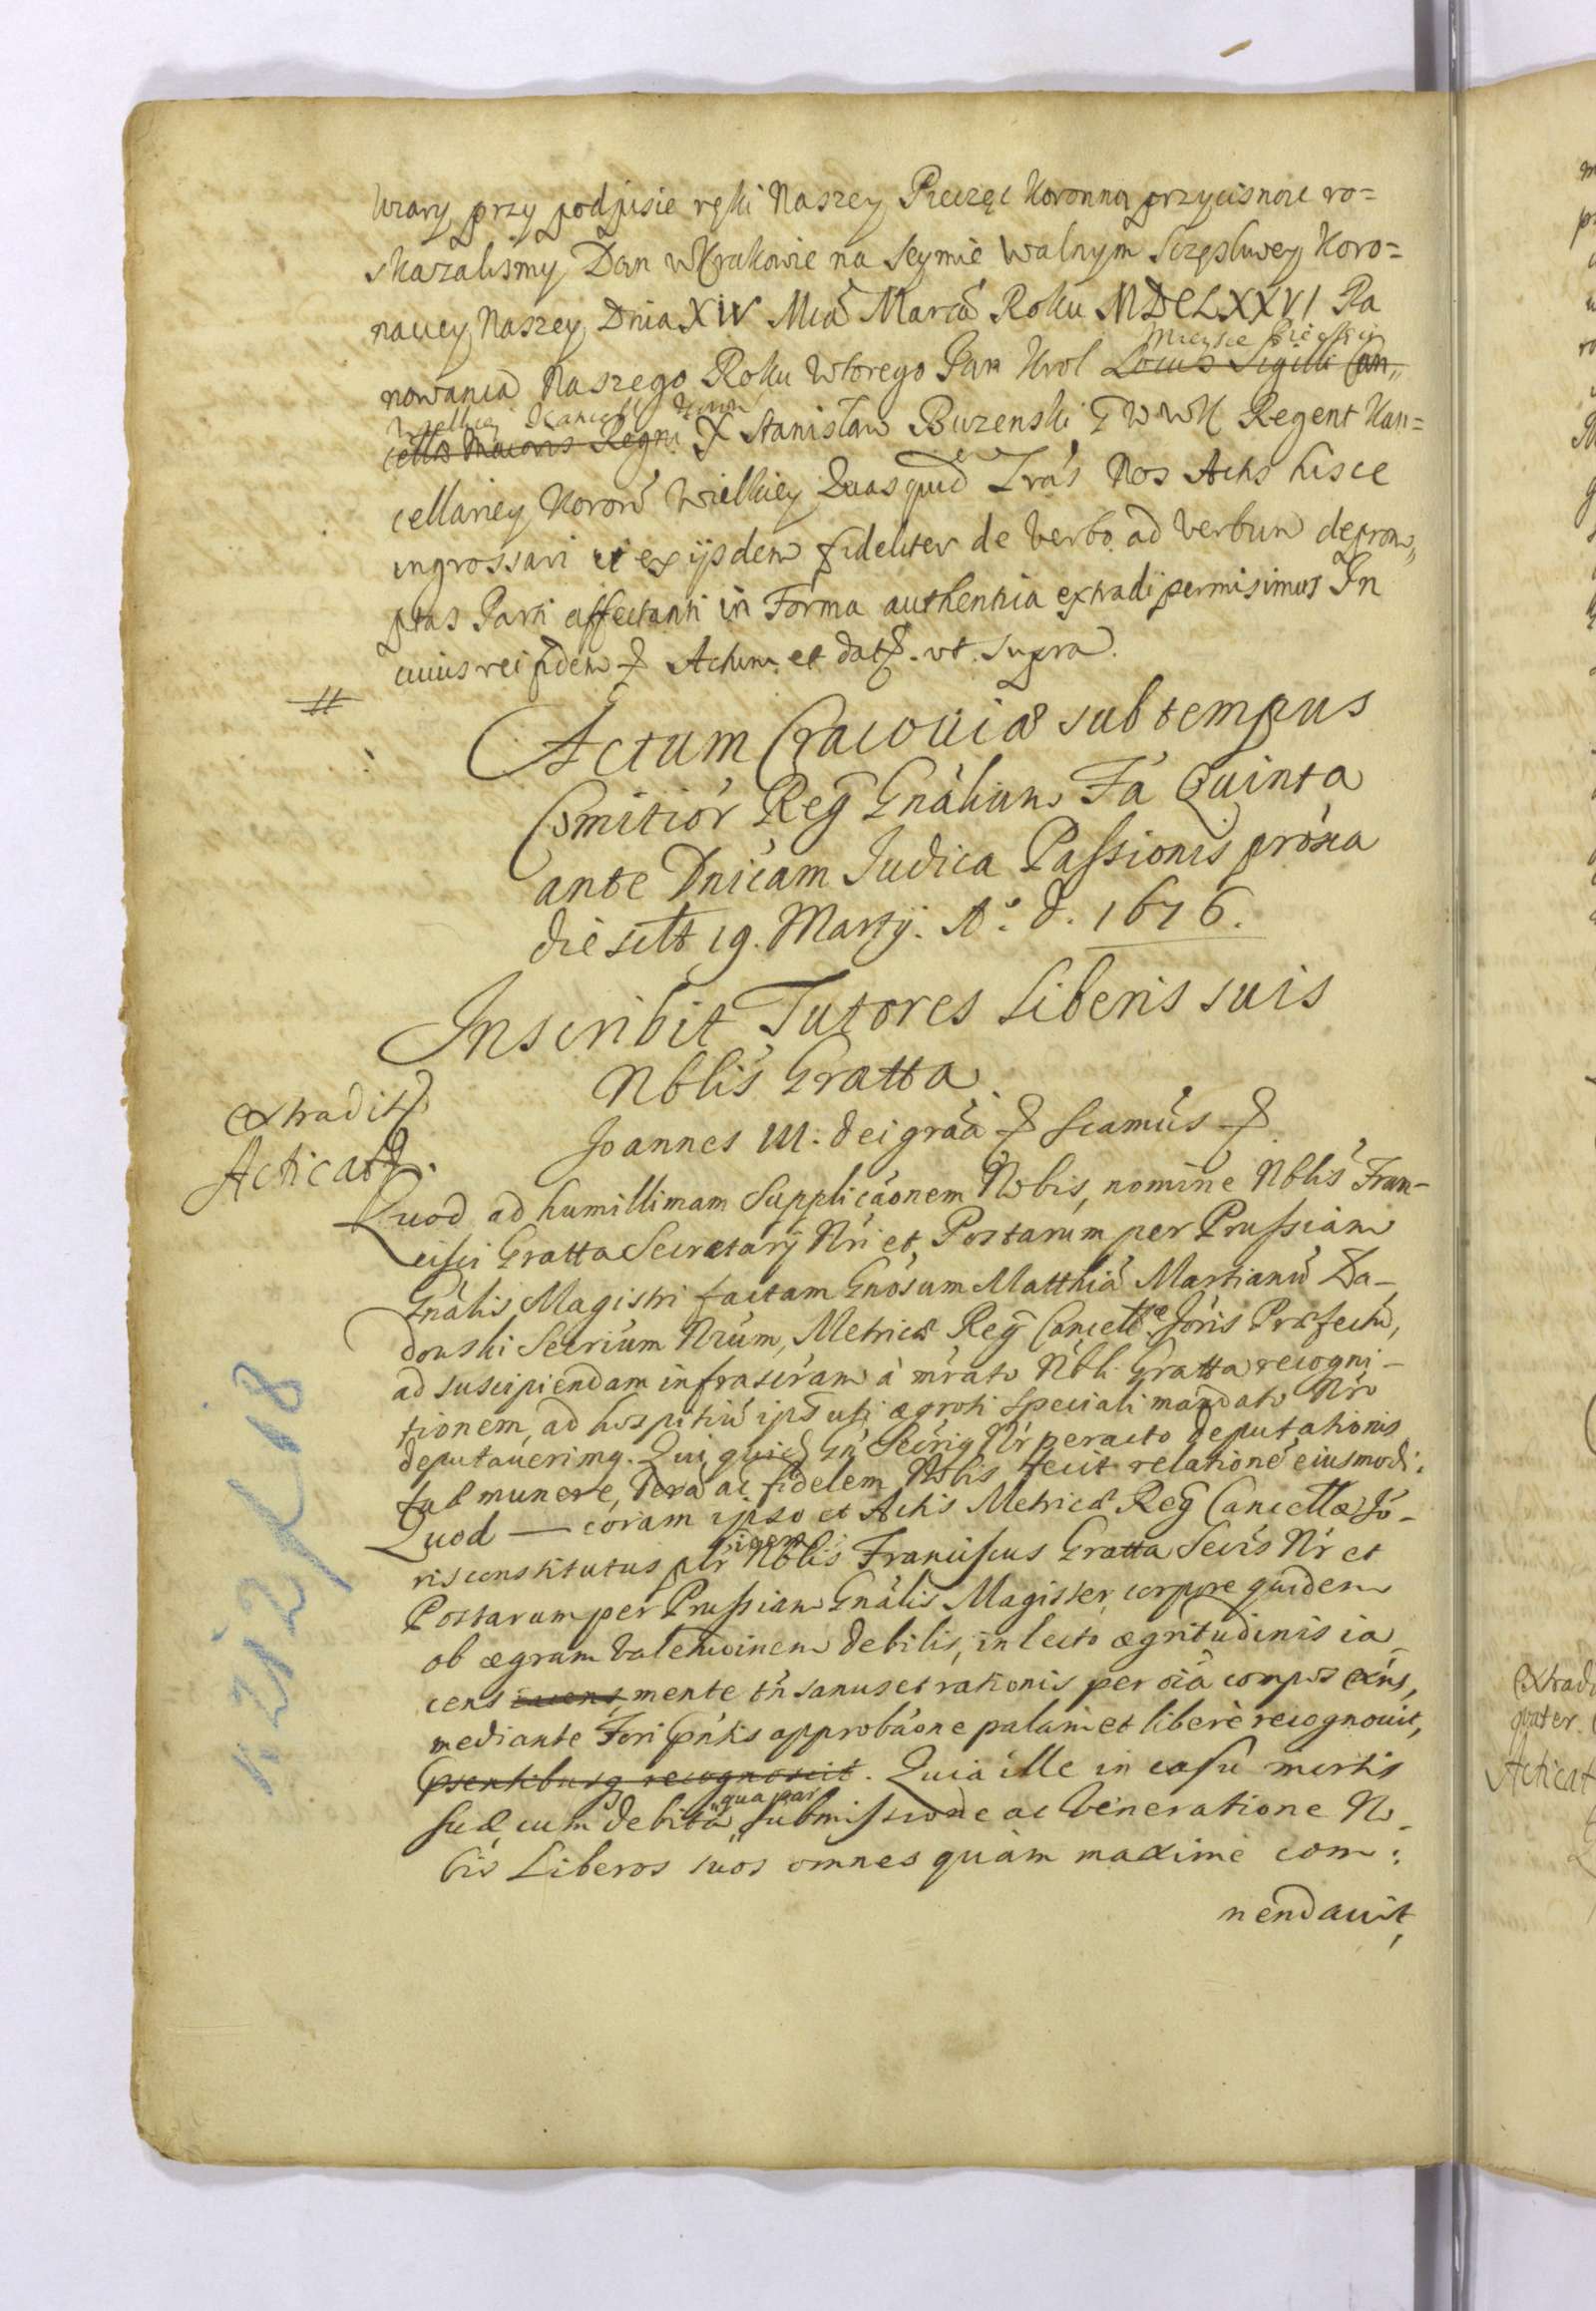 wiary przy podpisie ręki Naszey Pieczęć Koronną przycisnąc ro=
skazalismy Dan w Krakowie na Seymie Walnym Sczęsliwey Koro=
nacyey Naszey Dnia XIV Mca Marca Roku MDCLXXVI Pa
nowania Naszego Roku wtorego Jan Krol Locus Sigilli Can„
Mieysce Pieczęci
Wielkiey Kancell Koron
cellae Maioris Regni X Stanisław Buzenski P W W K Regent Kan=
cellariey Koron Wielkiey Quas quid Lras Nos Actis hisce
ingrossari et ex ijsdem fideliter de verbo ad verbum deprom„
ptas Parti affectanti in Forma authentica extradi permisimus In
cuius rei fidem Actum et dat. ut supra.
Actum Cracoviæ sub tempus
Comitior Reg Gnalium Fa Quinta
ante Dnicam Judica Passionis proxa
die scilt 19. Martij. Ao. d. 1676.
Inscribit Tutores Liberis suis
Nblis Gratta
extradit
Acticat.
Joannes III. dei graa Scamus
Quod ad humillimam Supplicaonem Nobis, nomine Nblis Fran-
cisci Gratta Secretarij Nri et Postarum per Prussiam
Gnalis Magistri factam Gnosum Matthia Martianu Ła-
donski Secrium Nrum, Metricæ Reg Cancellæ Joris Præfectu,
ad suscipiendam infrascram à mrato Nbli Gratta recogni-
tionem, ad hospitiu ips uti ægroti speciali mandato Nro
deputauerimq. Qui quid Gn Secriq Nr peracto deputationis
suæ munere, vera ac fidelem Nobis fecit relatione eiusmodi.
Quod — coram ipso et Actis Metricæ Reg Cancellæ Jo-
ris constitutus plr Nblis Franciscus Gratta Secrs Nr et
Postarum per Prussiam Gnalis Magister, corpore quidem
ob ægram valetudinem debilis, in lecto ægritudinis ia
cens iacens mente tn sanus et rationis per oia compos exns,
mediante Fori Pntis approbaone palam et liberè recognouit,
psentibusq recognoscit. Quia ille in casu mortis
suæ, cum debita „qua par„ submissione ac Veneratione No-
bis Liberos suos omnes quàm maximè com:
mendauit,